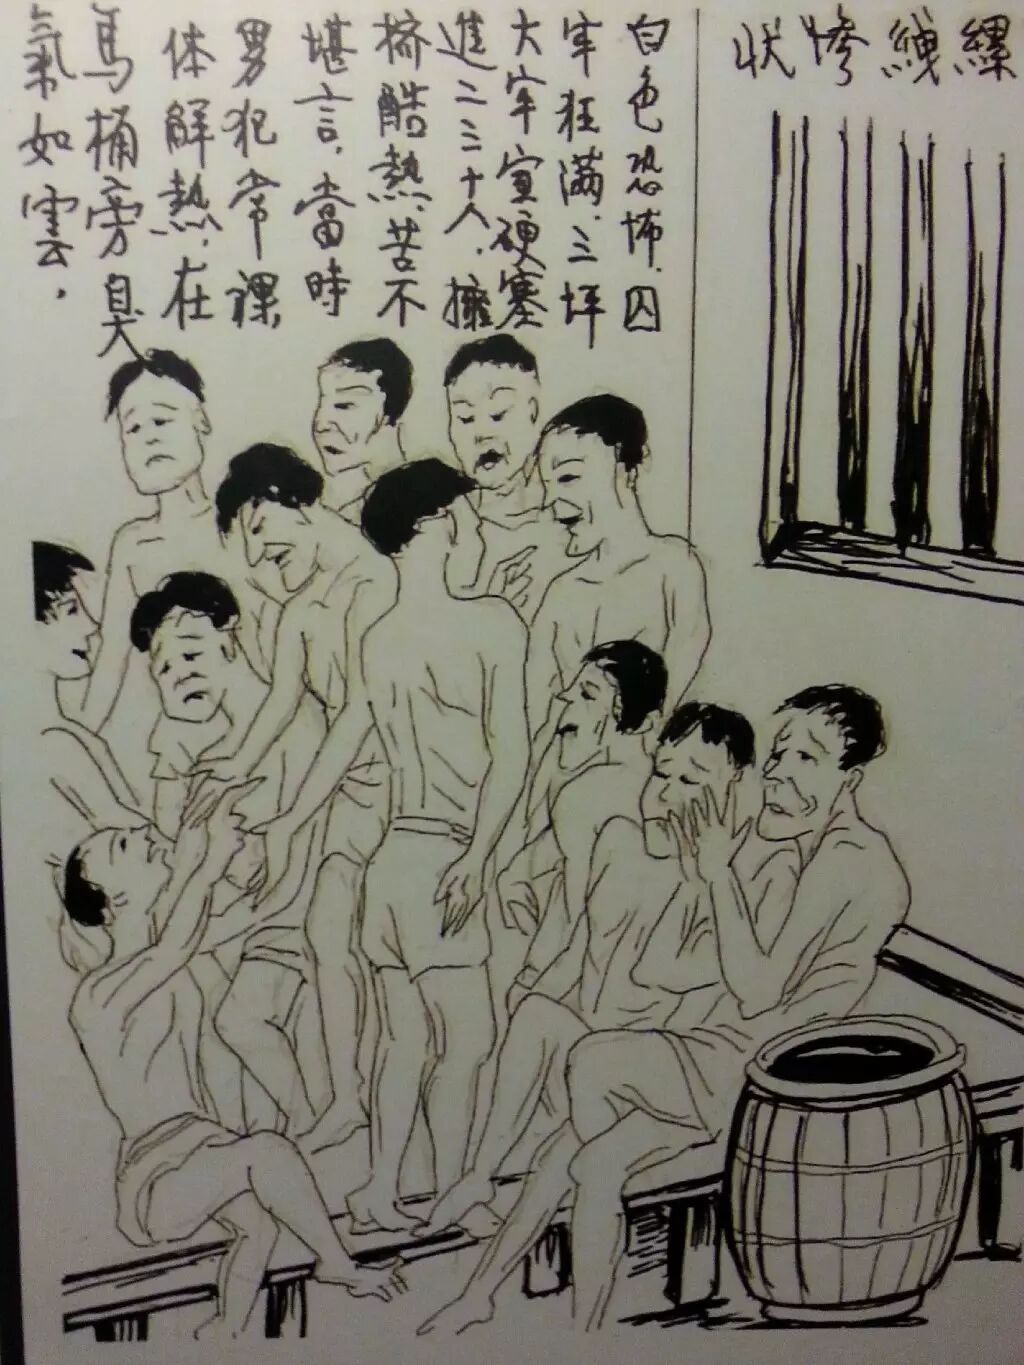 縲絏惨状
白色恐怖.囚
牢狂满.三坪
大牢宣硬塞
進二三十人,擁
擠酷熱,苦不
堪言,當時
男犯常裸,
体解熱,在
馬桶旁臭
氣如雲,